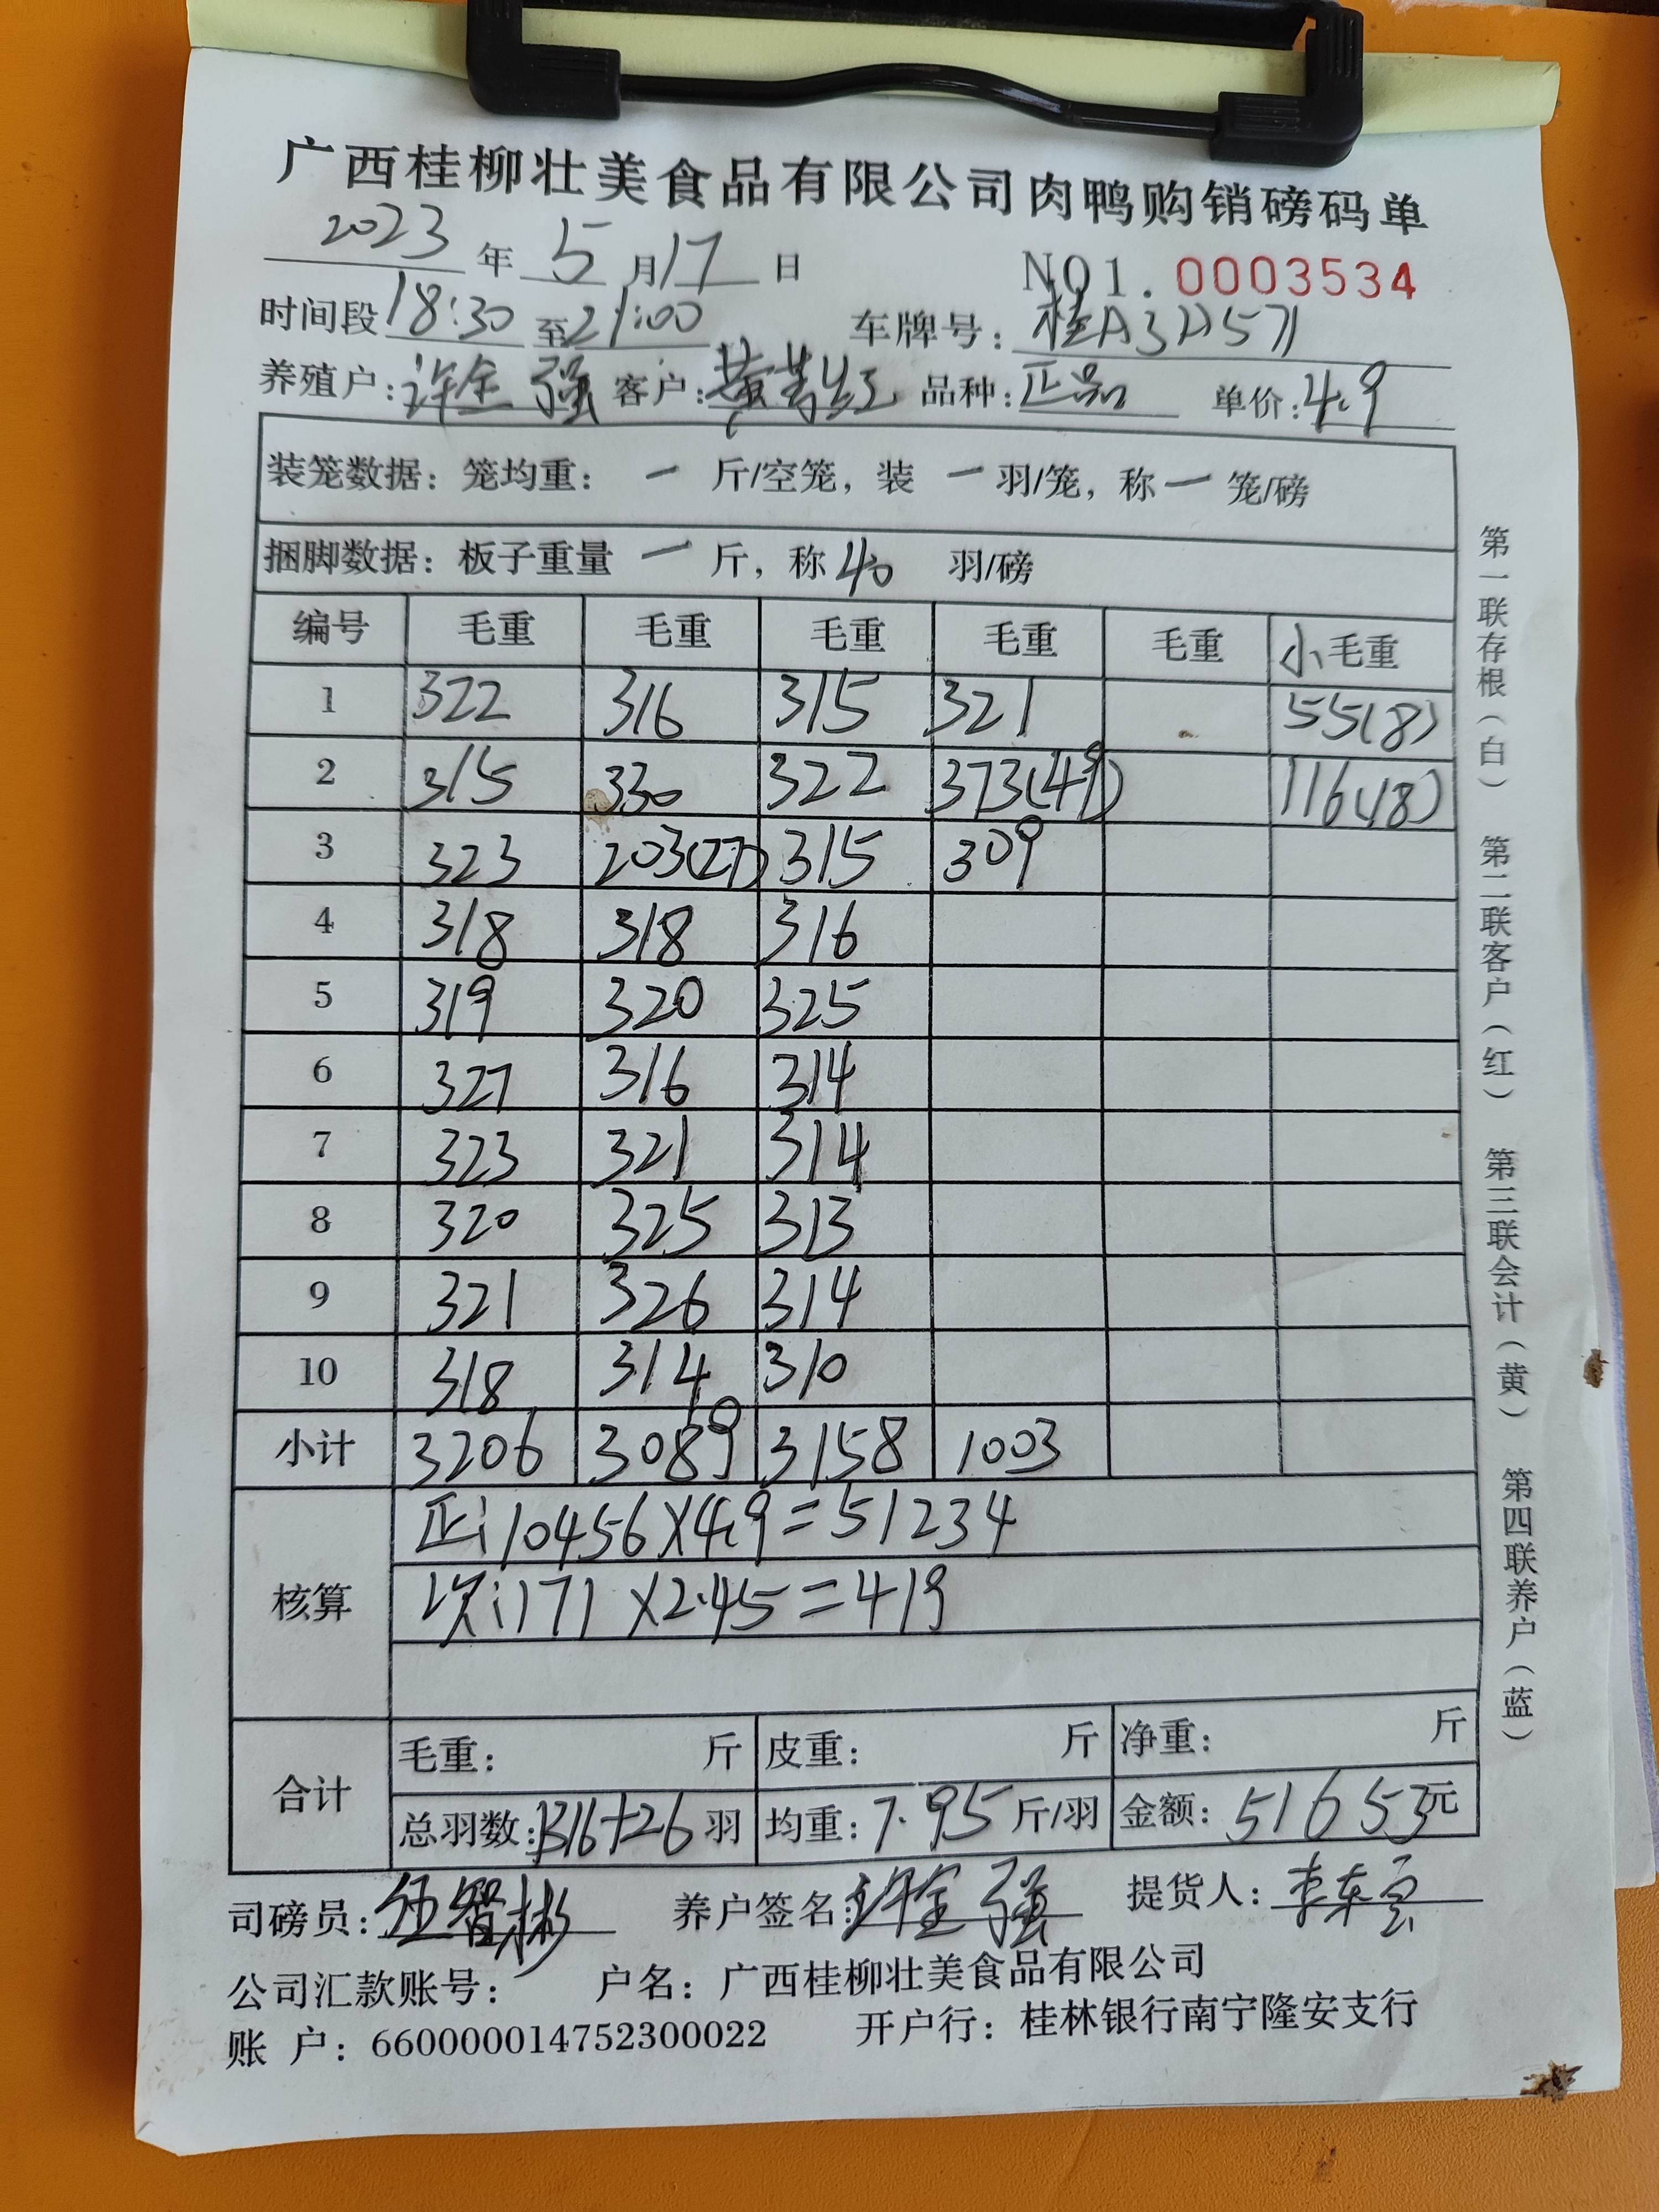 广西桂柳壮美食品有限公司肉鸭购销磅码单
2023年5月17日 NO1.0003534
时间段18:30至21:00 车牌号：桂A3A571
养殖户：许全强 客户： 品种：正品 单价：4.9
装笼数据：笼均重：一斤/空笼，装一羽/笼，称一笼/磅
捆脚数据：板子重量一斤，称40羽/磅
编号 毛重 毛重 毛重 毛重 毛重 小毛重
1 322 316 315 321 55(8)
2 315 330 322 373(49) 116(18)
3 323 203(27) 315 309
4 318 318 316
5 319 320 325
6 327 316 314
7 323 321 314
8 320 325 313
9 321 326 314
10 318 314 310
小计 3206 3089 3158 1003
核算 正:10456×4.9=51234
次:171×2.45=419
合计 毛重：斤 皮重：斤 净重：斤
总羽数：1316+26羽 均重：7.95斤/羽 金额：51653元
司磅员：伍智彬 养户签名：许全强 提货人：
公司汇款账号： 户名：广西桂柳壮美食品有限公司
账 户：660000014752300022 开户行：桂林银行南宁隆安支行
第一联存根（白） 第二联客户（红） 第三联会计（黄） 第四联养户（蓝）